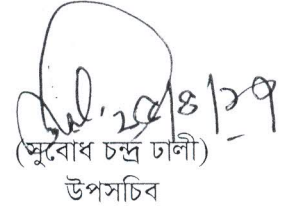 ২৫/৪/১৭
(সুবোধ চন্দ্র ঢালী)
উপসচিব